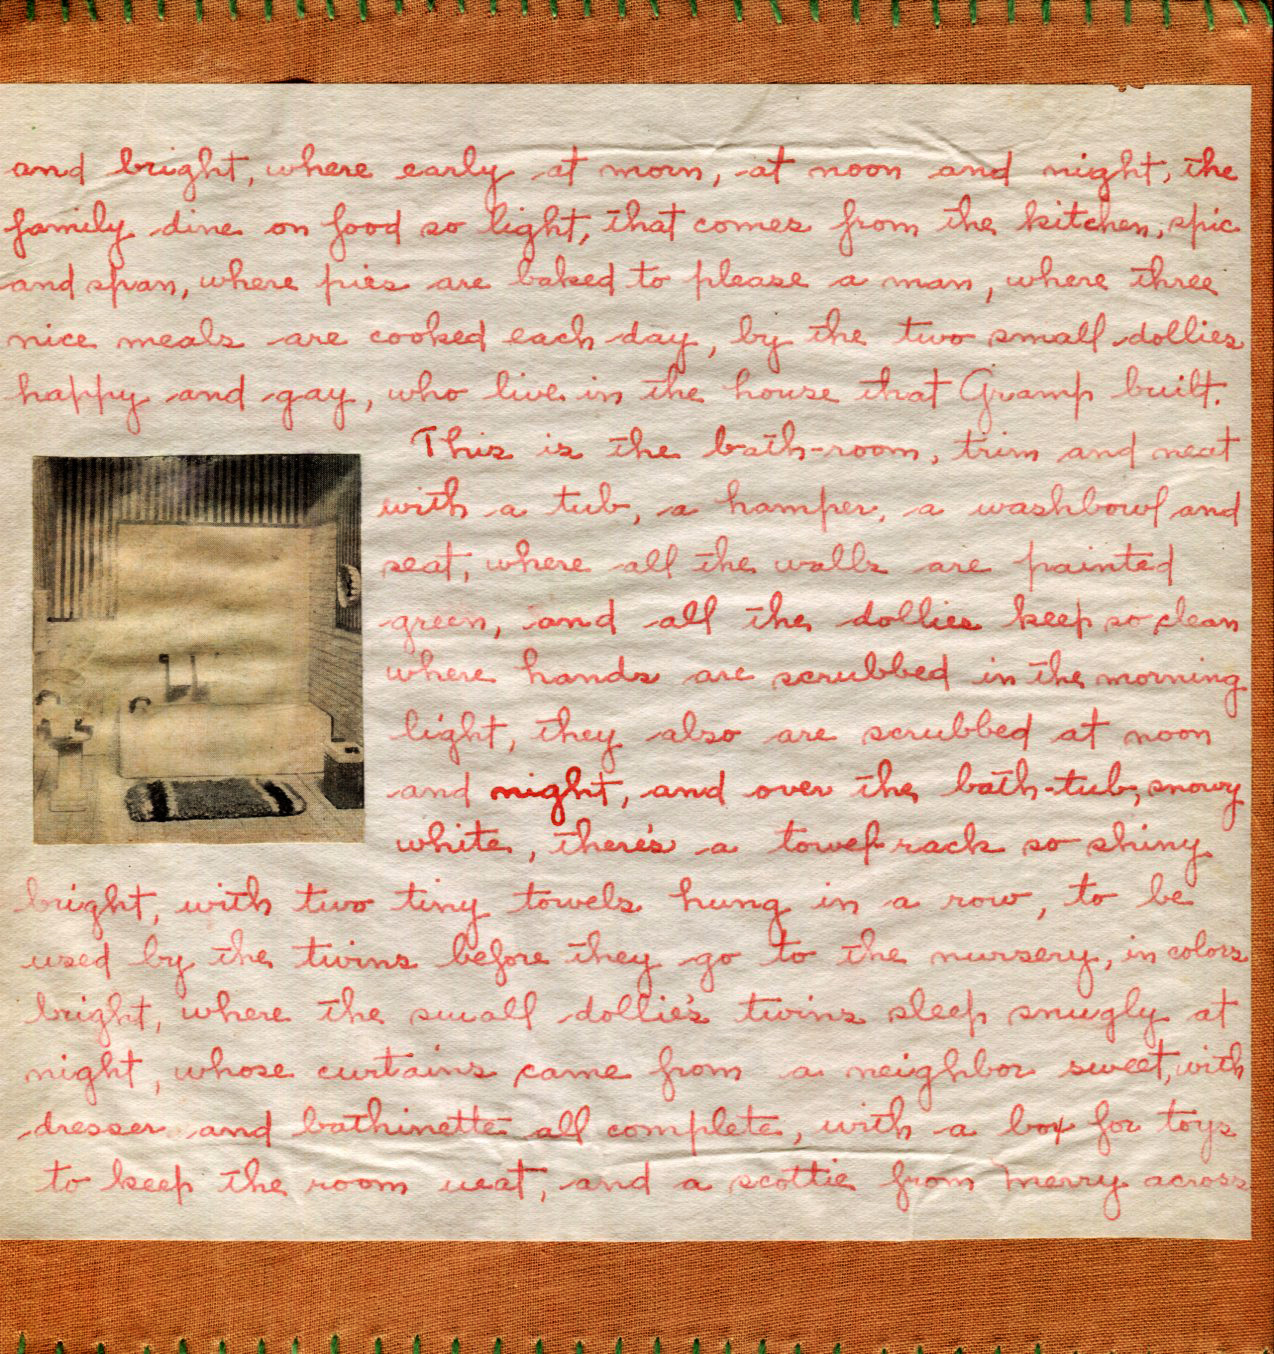 and bright, where early at morn, at noon and night, the
family dine on food so light, that comes from the kitchen, spic
and span, where pies are baked to please a man, where three
nice meals are cooked each day, by the two small dollies
happy and gay, who live in the house that Gramp built.
This is the bath-room, trim and neat
with a tub, a hamper, a washbowl and
seat, where all the walls are painted
green, and all the dollies keep so clean
where hands are scrubbed in the morning
light, they also are scrubbed at noon
and night, and over the bath-tub, snowy
white, there's a towel rack so shiny
bright, with two tiny towels hung in a row, to be
used by the twins before they go to the nursery, in colors
bright, where the small dollie's twins sleep snugly at
night, whose curtains came from a neighbor sweet, with
dresser and bathinette all complete, with a box for toys
to keep the room neat, and a scottie from Merry across